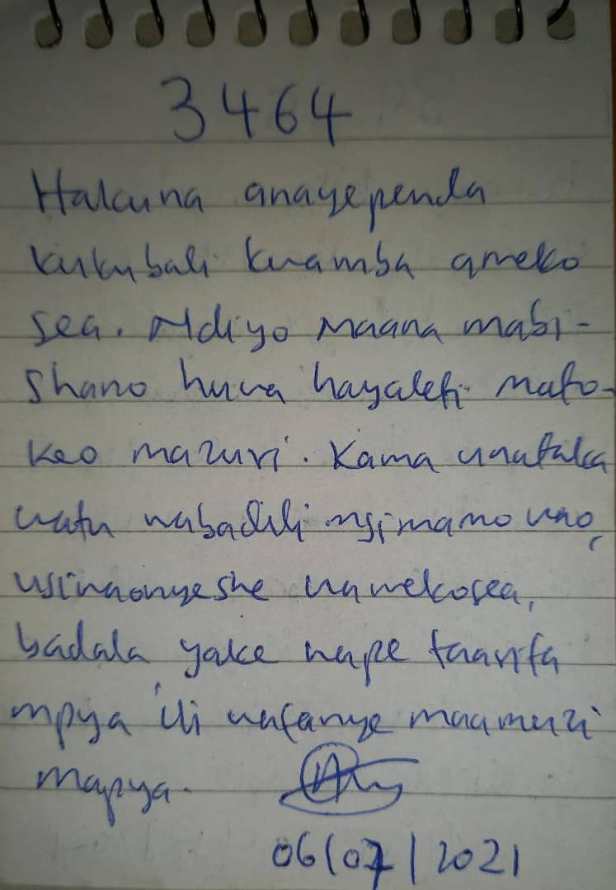 3464
Hakuna anayependa
kukubali kuamba ameko
sea. Ndiyo maana mabi-
shano huwa hayaleti mato-
keo mazuri. Kama unataka
watu wabadili msimamo wao,
usiwaonyeshe wamekosea,
badala yake wape taarifa
mpya ili wafanye maamuzi
mapya.
06/07/2021